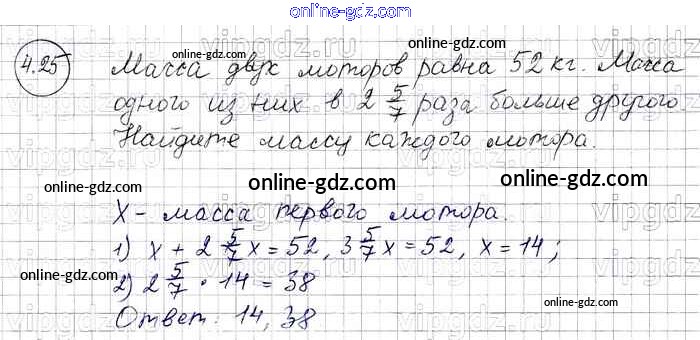 online-gdz.com
4.25 Масса двух моторов равна 52 кг. Масса
одного из них в 2 5/7 раза больше другого.
Найдите массу каждого мотора.
X - масса первого мотора.
1) x + 2 5/7 x = 52, 3 5/7 x = 52, x = 14;
2) 2 5/7 · 14 = 38
Ответ: 14, 38
online-gdz.com
online-gdz.com
online-gdz.com
online-gdz.com
online-gdz.com
online-gdz.com
online-gdz.com
online-gdz.com
online-gdz.com
online-gdz.com